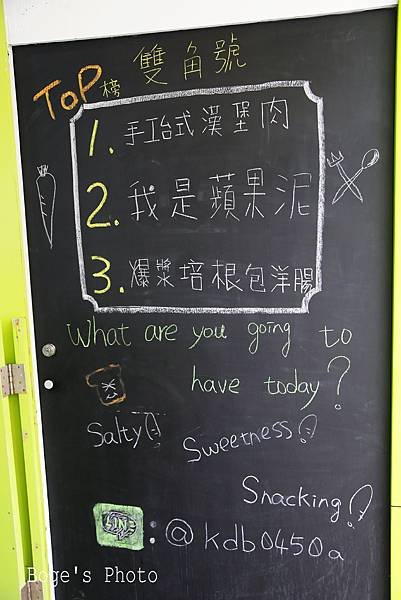 雙角號
TOP榜
1. 手工台式漢堡肉
2. 我是蘋果泥
3. 爆漿培根包洋腸
What are you going to
have today?
Salty?
Sweetness?
Snacking?
LINE : @kdb0450a
Boge's Photo